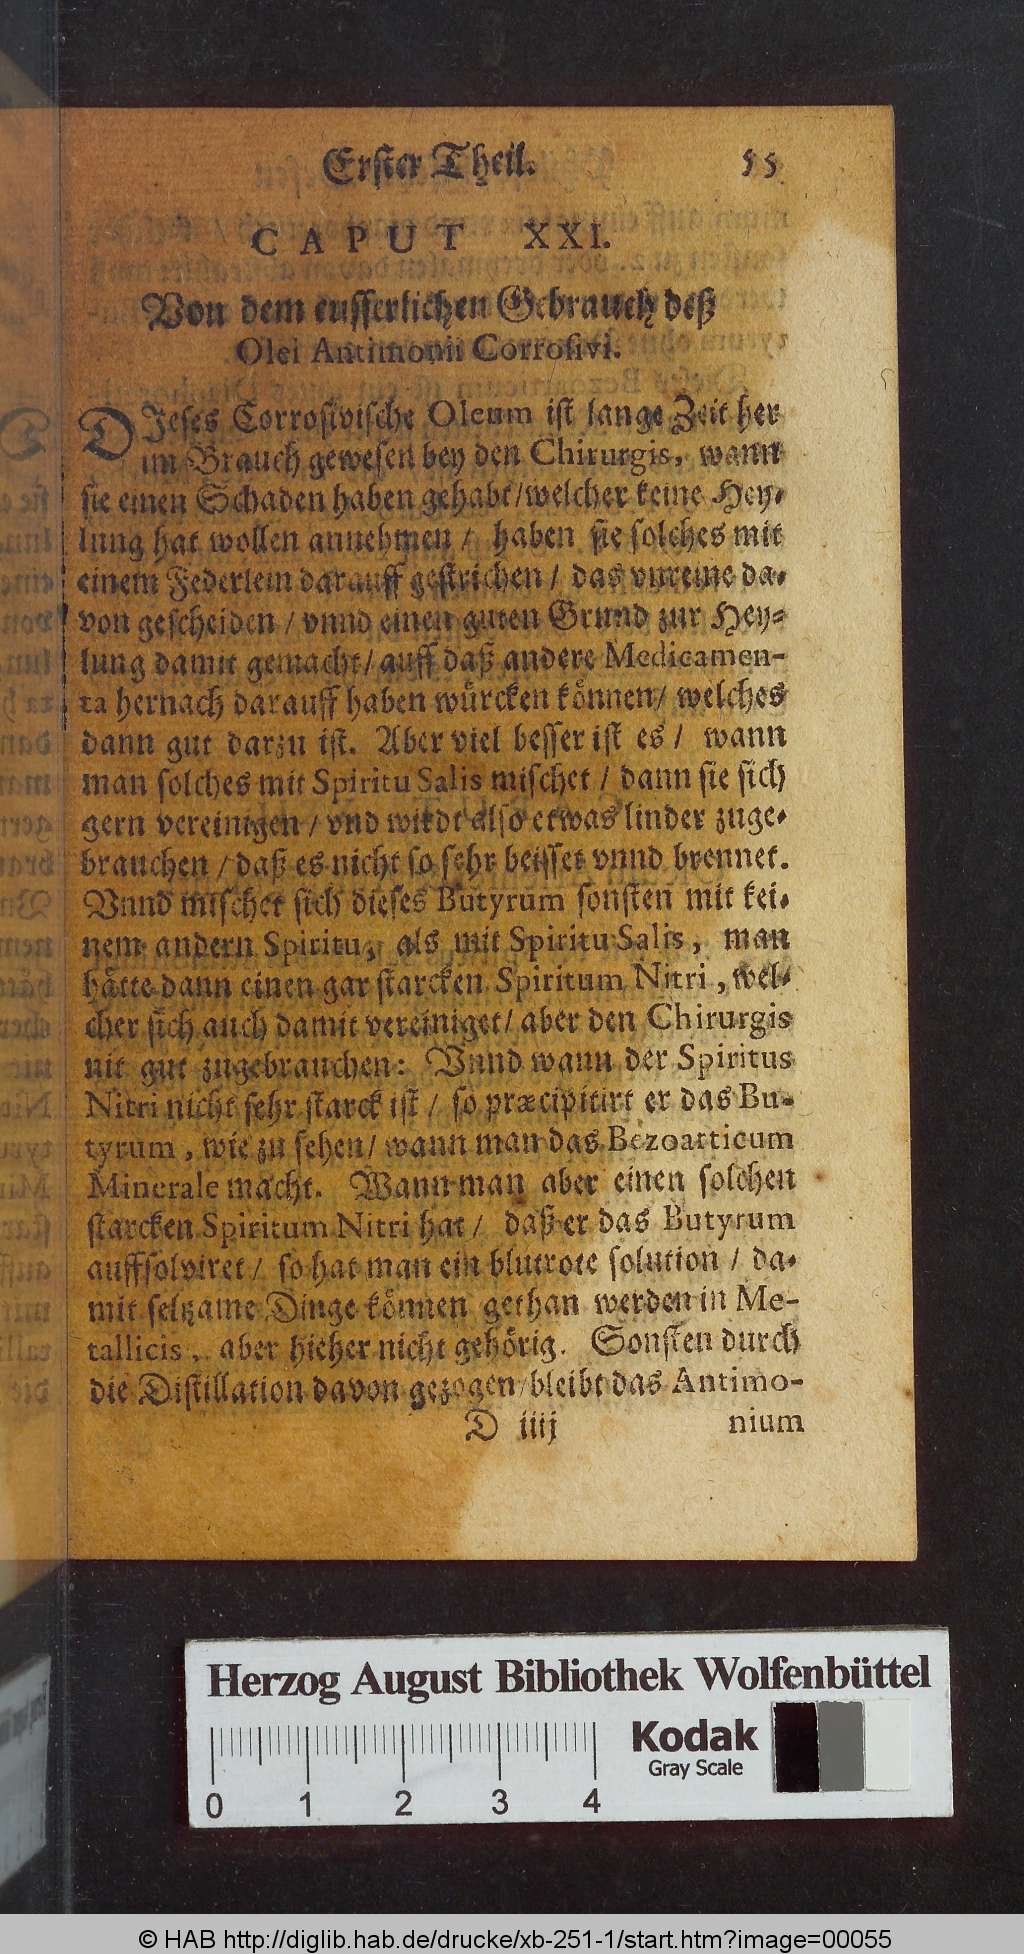 Erster Theil. 55
CAPUT XXI.
Von dem eusserlichen Gebrauch deß
Olei Antimonii Corrosivi.
DIeses Corrosivische Oleum ist lange Zeit her
im Brauch gewesen bey den Chirurgis, wann
sie einen Schaden haben gehabt/welcher keine Hey-
lung hat wollen annehmen / haben sie solches mit
einem Federlein darauff gestrichen / das vnreine da-
von gescheiden / vnnd einen guten Grund zur Hey-
lung damit gemacht / auff daß andere Medicamen-
ta hernach darauff haben würcken können / welches
dann gut darzu ist. Aber viel besser ist es / wann
man solches mit Spiritu Salis mischet / dann sie sich
gern vereinigen / vnd wirdt also etwas linder zuge-
brauchen / daß es nicht so sehr beisset vnnd brennet.
Vnnd mischet sich dieses Butyrum sonsten mit kei-
nem andern Spiritu, als mit Spiritu Salis, man
hätte dann einen gar starcken Spiritum Nitri, wel-
cher sich auch damit vereiniget / aber den Chirurgis
nit gut zugebrauchen: Vnnd wann der Spiritus
Nitri nicht sehr starck ist / so præcipitirt er das Bu-
tyrum, wie zu sehen / wann man das Bezoarticum
Minerale macht. Wann man aber einen solchen
starcken Spiritum Nitri hat / daß er das Butyrum
auffsolviret / so hat man ein blutrote solution / da-
mit seltzame Dinge können gethan werden in Me-
tallicis, aber hieher nicht gehörig. Sonsten durch
die Distillation davon gezogen/bleibt das Antimo-
D iiij nium
Herzog August Bibliothek Wolfenbüttel
Kodak
Gray Scale
0 1 2 3 4
© HAB http://diglib.hab.de/drucke/xb-251-1/start.htm?image=00055